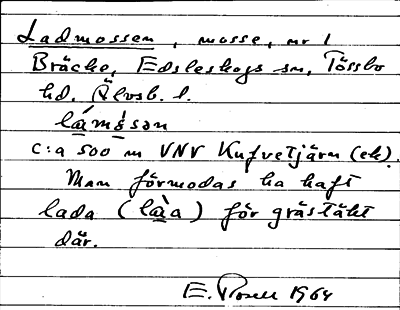 Ladmossen, mosse, nr 1
Bräcke, Edsleskogs sn, Tössbo
hd. Älvsb. l.
lámȯsən
c:a 500 m VNV Kufvetjärn (ek).
Man förmodas ha haft
lada (là̱a) för gräståkt
där.
E. Rosell 1964